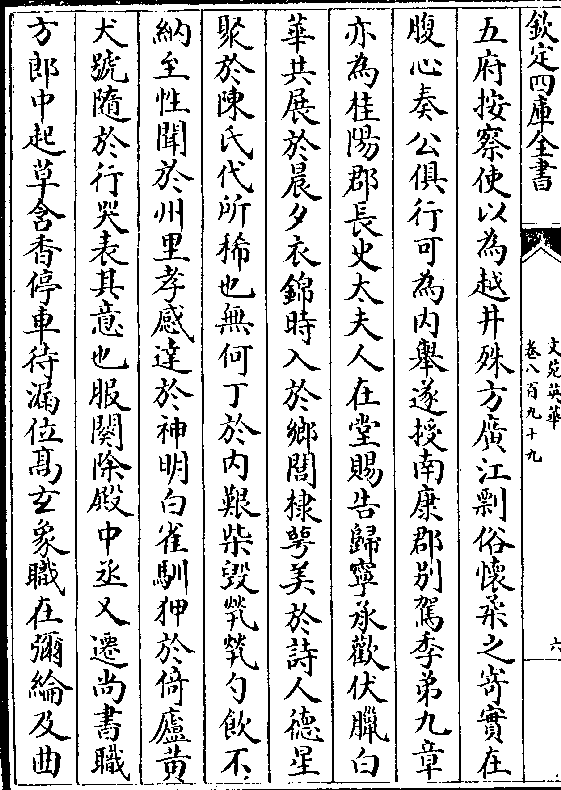 欽定四庫全書
文苑英華
卷八百九十九
六
五府按察使以為越井殊方廣江剽俗懷柔之寄實在
腹心奏公俱行可為内舉遂授南康郡别駕季弟九章
亦為桂陽郡長史太夫人在堂賜告歸寧承歡伏臘白
華共展於晨夕衣錦時入於鄉閭棣萼美於詩人德星
聚於陳氏代所稀也無何丁於内艱柴毀煢煢勺飲不
納至性聞於州里孝感達於神明白雀馴狎於倚廬黄
犬號隨於行哭表其意也服闋除殿中丞又遷尚書職
方郎中起草含香停車待漏位髙玄象職在彌綸及曲